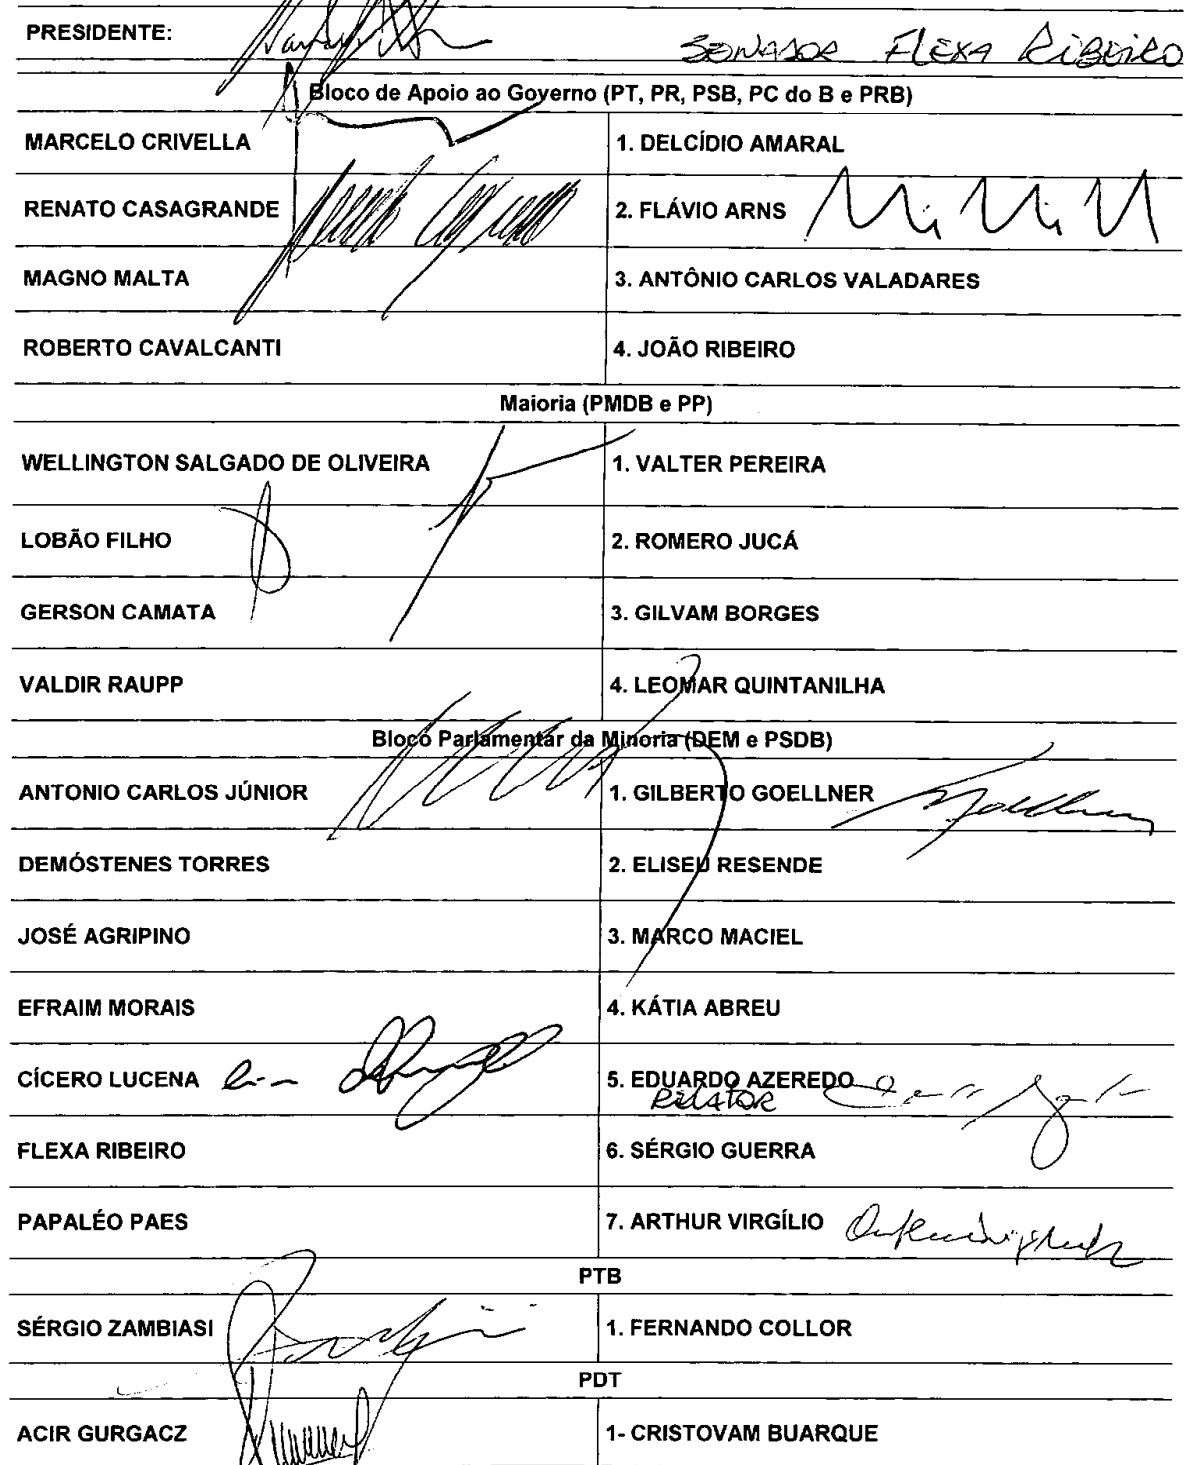 PRESIDENTE: SENADOR FLEXA RIBEIRO
Bloco de Apoio ao Governo (PT, PR, PSB, PC do B e PRB)
MARCELO CRIVELLA 1. DELCÍDIO AMARAL
RENATO CASAGRANDE 2. FLÁVIO ARNS
MAGNO MALTA 3. ANTÔNIO CARLOS VALADARES
ROBERTO CAVALCANTI 4. JOÃO RIBEIRO
Maioria (PMDB e PP)
WELLINGTON SALGADO DE OLIVEIRA 1. VALTER PEREIRA
LOBÃO FILHO 2. ROMERO JUCÁ
GERSON CAMATA 3. GILVAM BORGES
VALDIR RAUPP 4. LEOMAR QUINTANILHA
Bloco Parlamentar da Minoria (DEM e PSDB)
ANTONIO CARLOS JÚNIOR 1. GILBERTO GOELLNER
DEMÓSTENES TORRES 2. ELISEU RESENDE
JOSÉ AGRIPINO 3. MARCO MACIEL
EFRAIM MORAIS 4. KÁTIA ABREU
CÍCERO LUCENA 5. EDUARDO AZEREDO
RELATOR
FLEXA RIBEIRO 6. SÉRGIO GUERRA
PAPALÉO PAES 7. ARTHUR VIRGÍLIO
PTB
SÉRGIO ZAMBIASI 1. FERNANDO COLLOR
PDT
ACIR GURGACZ 1- CRISTOVAM BUARQUE